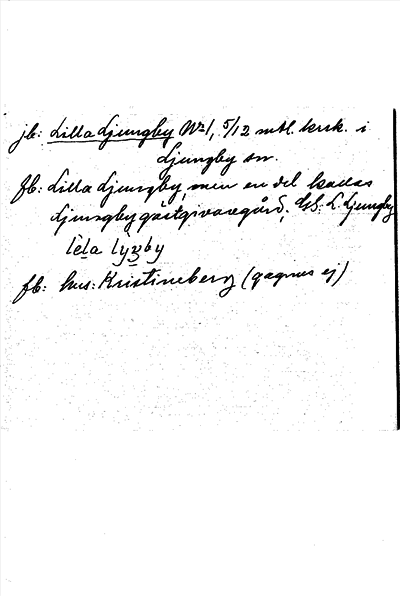 jb: Lilla Ljungby No 1, 5/12 mtl. krsk. i
Ljungby sn.
fb: Lilla Ljungby, men en del kallas
Ljungby gästgivaregård; Gb: L. Ljungby
lela lyzby
fb: hus: Kristineberg (gagnas ej)